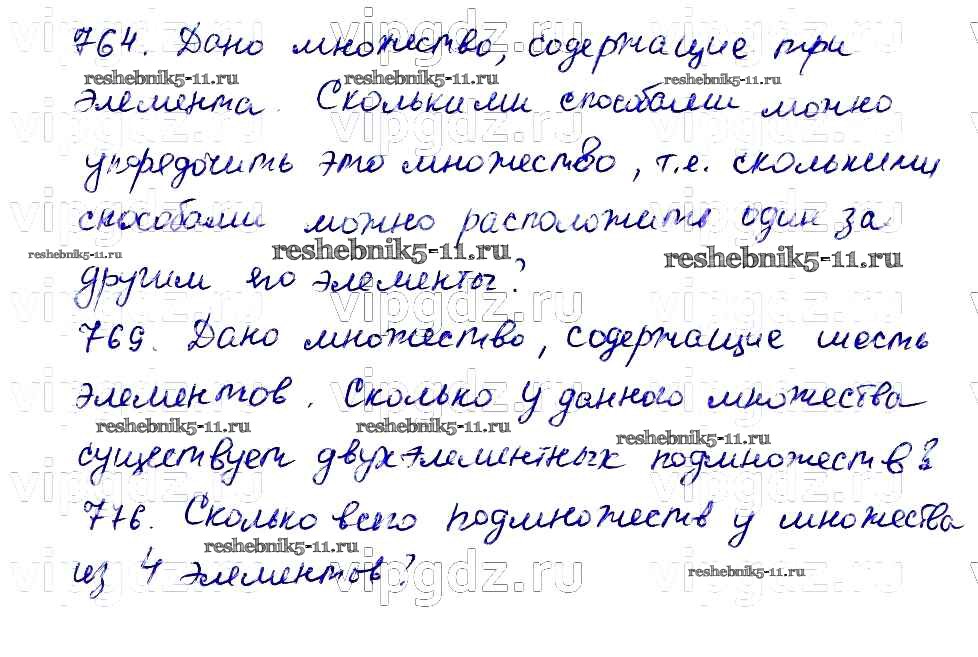 764. Дано множество, содержащие три
reshebnik5-11.ru reshebnik5-11.ru reshebnik5-11.ru
элемента. Сколькими способами можно
vipgdz.ru vipgdz.ru vipgdz.ru
упорядочить это множество, т.е. сколькими
способами можно расположить один за
reshebnik5-11.ru reshebnik5-11.ru reshebnik5-11.ru
другим его элементы?
769. Дано множество, содержащие шесть
элементов. Сколько у данного множества
reshebnik5-11.ru reshebnik5-11.ru reshebnik5-11.ru
существует двухэлементных подмножеств?
776. Сколько всего подмножеств у множества
reshebnik5-11.ru reshebnik5-11.ru
из 4 элементов?